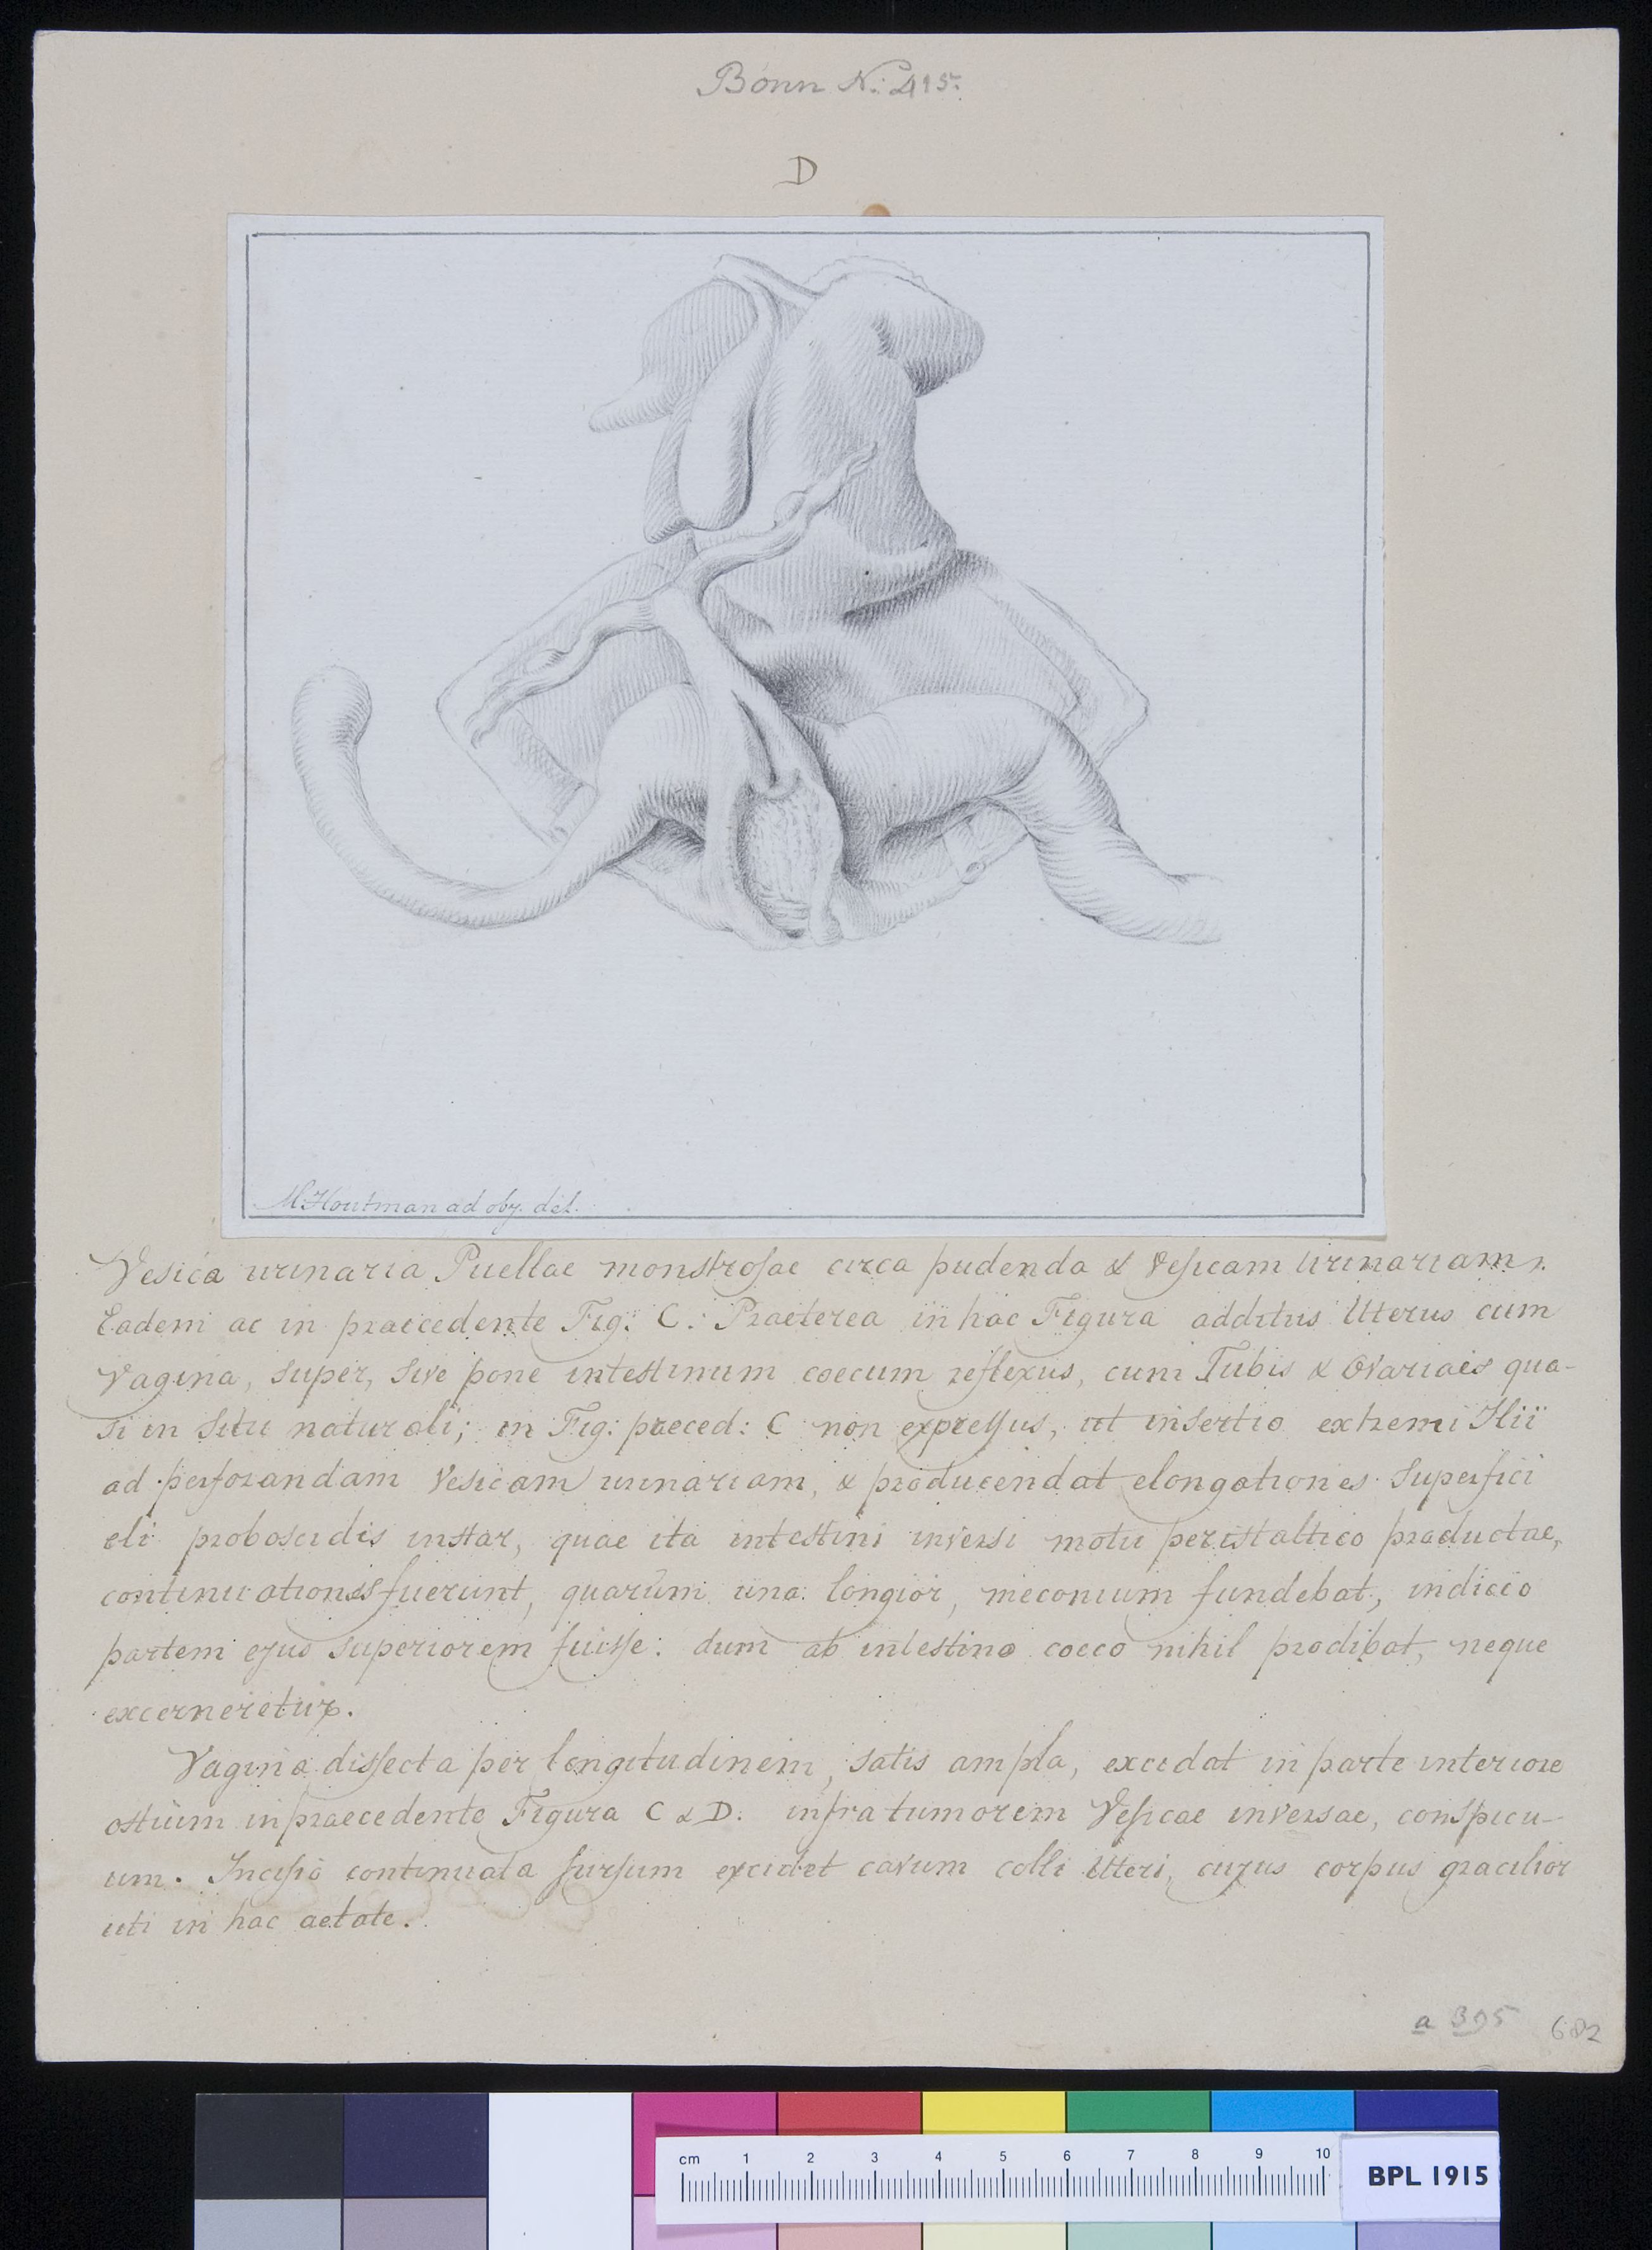 Bonn N: 415.
D
M: Houtman ad obj. del.
Vesica urinaria Puellae monstrosae circa pudenda & Vesicam Urinariam.
Eadem ac in praecedente Fig: C: Praeterea in hac Figura additus Uterus cum
Vagina, super, sive pone intestinum coecum reflexus, cum Tubis & Ovariaeis qua-
si in Situ naturali; in Fig: praeced: C non expressus, ut insertio extremi Ilii
ad perforandam Vesicam urinariam, & producendat elongationes Superfici
eli proboscidis instar, quae ita intestini inversi motu peristaltico productae,
continuationes fuerunt, quarum una longior, meconium fundebat, indicio
partem ejus superiorem fuisse: dum ab intestino coeco nihil prodibat, neque
excerneretur.
Vagina dissecta per longitudinem, satis ampla, excedat in parte interiore
ostium in praecedente Figura C & D. infra tumorem Vesicae inversae, conspicu-
um. Incisio continuata sursum excidet cavum colli Uteri, cujus corpus gracilior
uti in hac aetate.
a 395 682
cm 1 2 3 4 5 6 7 8 9 10
BPL 1915